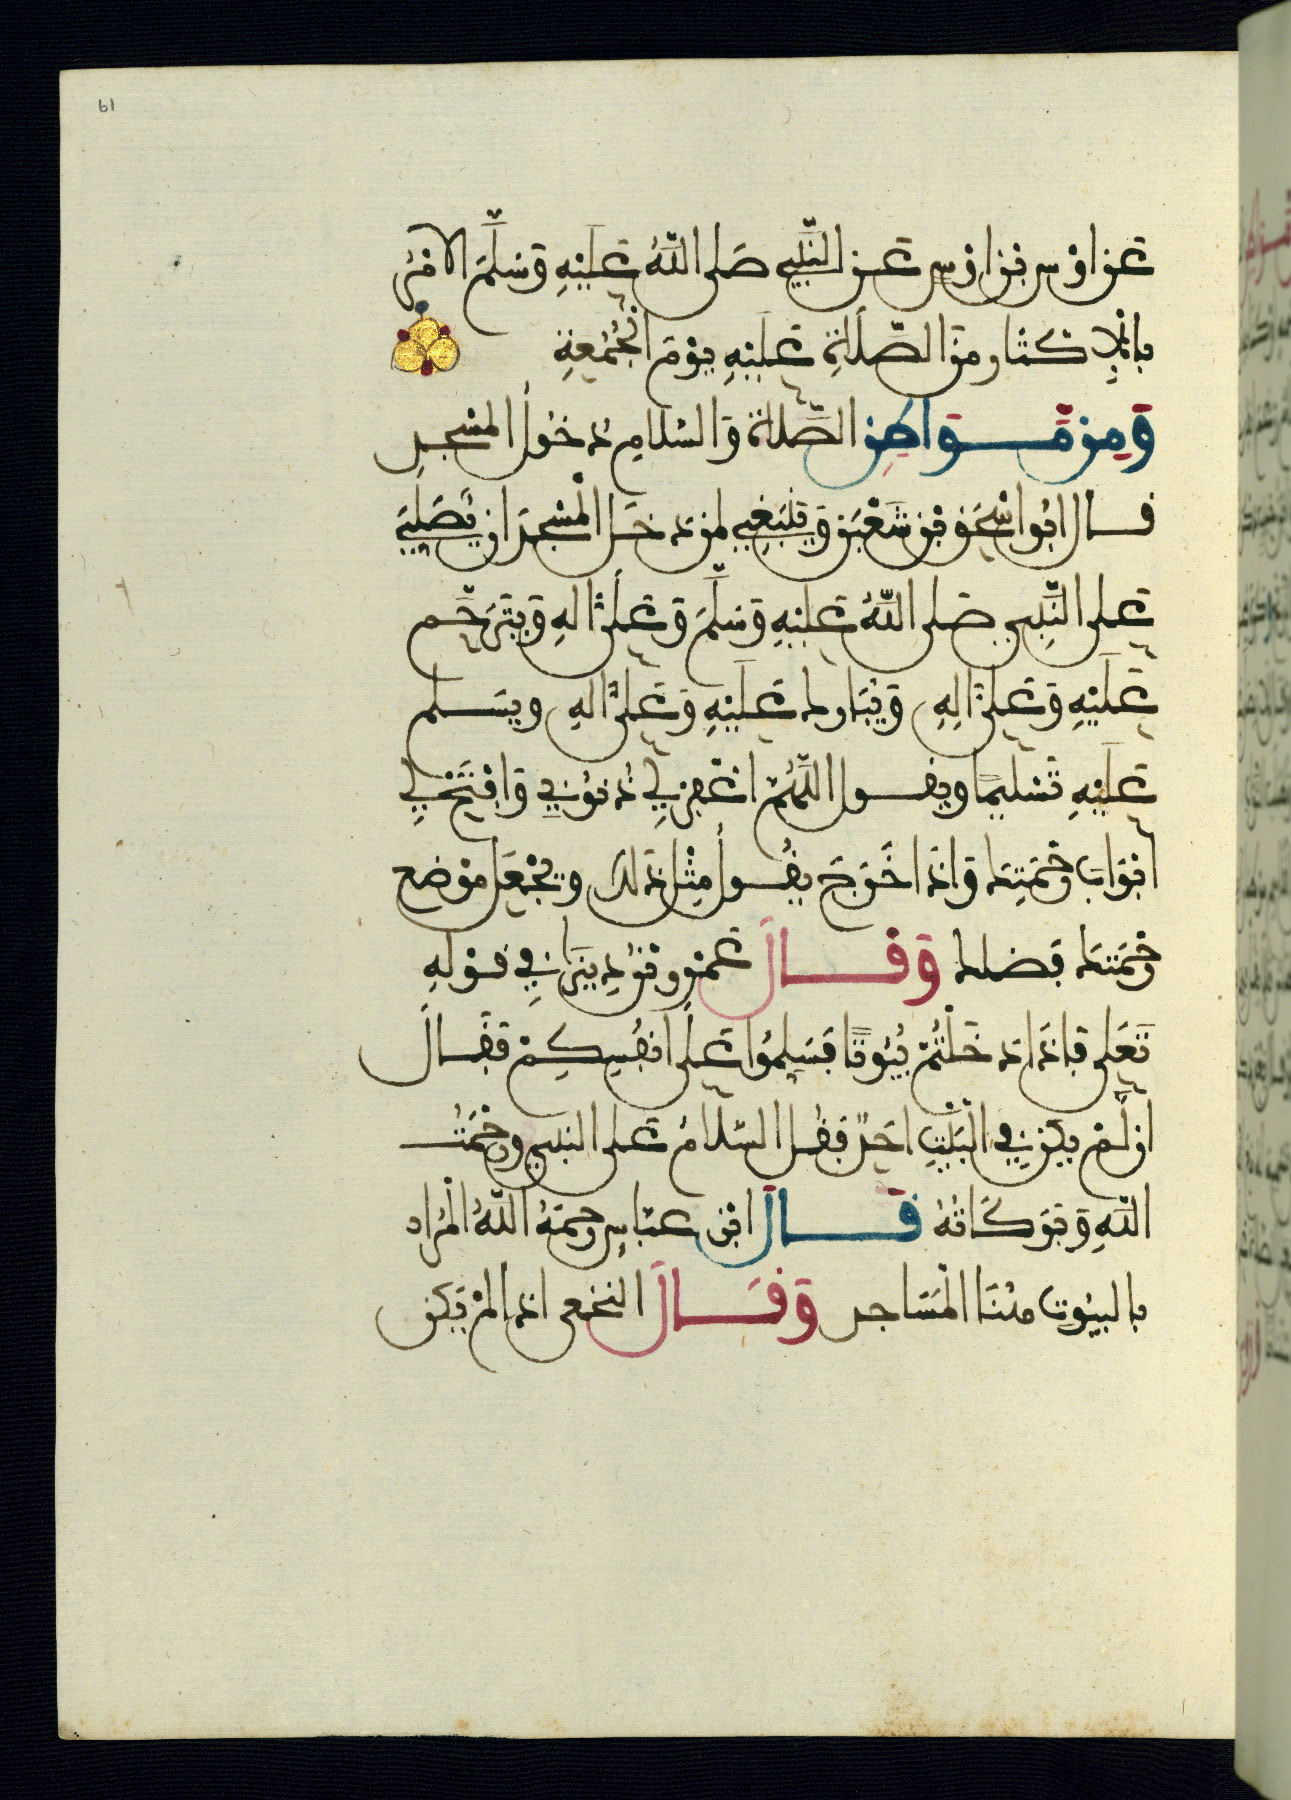 61
عَن اوْسِ بْنِ اوْسٍ عَنِ النَّبِيِّ صَلى اللَّهُ عَلَيْهِ وَسَلَّمَ الامْرُ
بالْإكثار مِنَ الصَّلَاةِ عَلَيْهِ يَوْمَ الْجُمُعَةِ
وَمِن مَّوَاطِنِ الصَّلاة وَالسّلامِ دخولُ المسْجدِ
قال ابُو اسْحَق بْن شَعْبَن وَيَنبَغِي لمن دخَل الْمَسْجدَ ان يُصَلِّيَ
عَلى النَّبِي صَلى اللَّهُ عَلَيْهِ وَسَلَّمَ وَعَلى الهِ وَيَتَرَحَّم
عَلَيْهِ وَعَلى الِهِ وَيُبَارِك عَلَيْهِ وَعَلى الهِ ويسَلم
عَلَيْهِ تَسْليمًا ويقول اللَّهُمَّ اغْفِرْ لِي ذنُوبي وَافْتَحْ لِي
ابْوَابَ رَحْمَتِك وَاذا خَرَجَ يقُولُ مِثْل ذلكَ ويَجْعَل موْضع
رَحْمَتك فَضلك وَقَالَ عَمْرو بْنُ دِينَار فِي قوْلهِ
تَعَلى فَاذا دَخَلْتُمْ بُيُوتًا فَسَلِّمُوا عَلى انفُسِكُمْ فَقَالَ
ان لَّمْ يكن فِي الْبَيْتِ احَدٌ فَقُل السّلَامُ عَلى النبي ورَحْمَتُ
اللَّهِ وَبَرَكَاتُهُ قَالَ ابْن عبّاسٍ رحِمَهُ اللَّهُ الْمُرَاد
بالبيُوت هنَا الْمَسَاجد وَقَالَ النخعي اذا لمْ يَكن